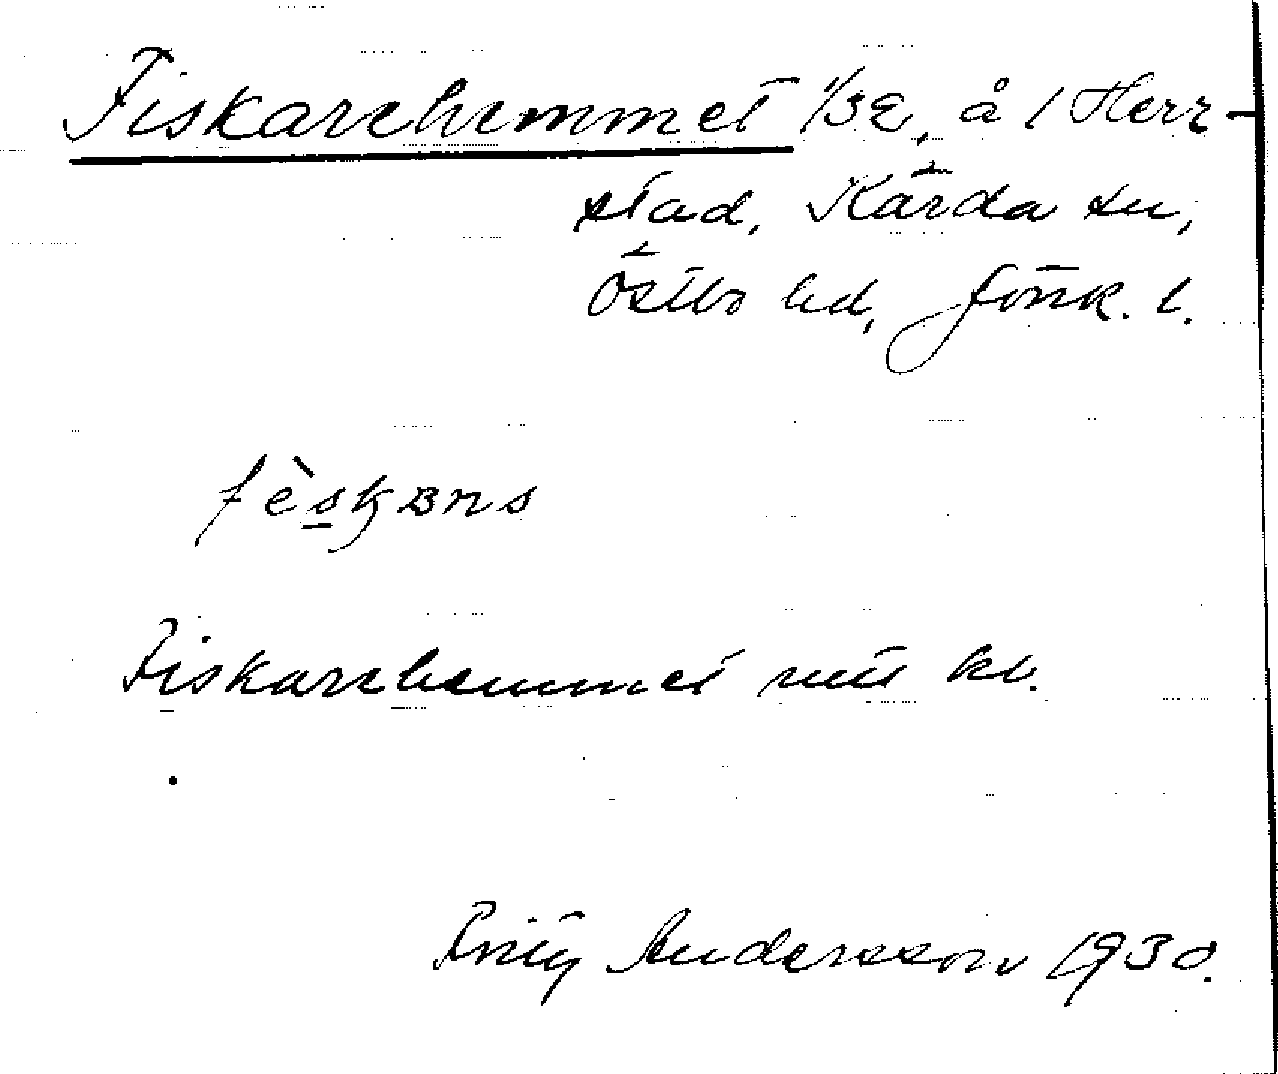 Fiskarehemmet 1/32, å 1 Herr-
stad, Kärda sn,
Östbo hd, Jönk. l.
fèskans
Fiskarehemmet mtl kb.
Fritz Andersson 1930.